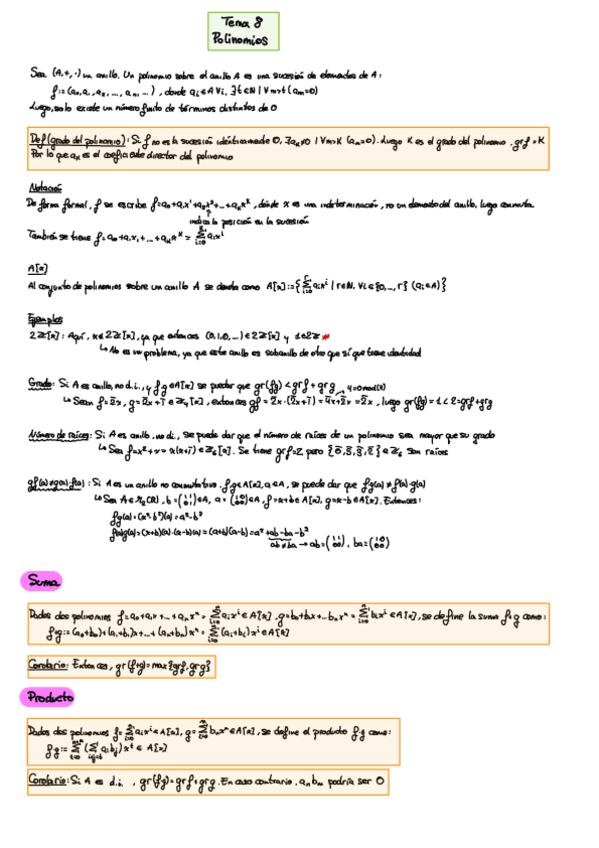 Tema 8
Polinomios
Sea (A,+,·) un anillo. Un polinomio sobre el anillo A es una sucesión de elementos de A:
f:=(a₀,a₁,a₂,...,aₙ,...), donde aᵢ∈A ∀i, ∃t∈ℕ | ∀m>t (aₘ=0)
Luego, solo existe un número finito de términos distintos de 0
Def (grado del polinomio): Si f no es la sucesión idénticamente 0, ∃aₖ≠0 | ∀m>K (aₘ=0). Luego K es el grado del polinomio. grf=K
Por lo que aₖ es el coeficiente director del polinomio
Notación
De forma formal, f se escribe f=a₀+a₁x¹+a₂x²+...+aₖxᵏ, donde x es una indeterminación, no un elemento del anillo, luego conmuta.
indica la posición en la sucesión
También se tiene
A[x]
Al conjunto de polinomios sobre un anillo A se denota como A[x]:={∑aᵢxⁱ | r∈ℕ, ∀i∈{0,...,r} (aᵢ∈A)}
Ejemplos
2ℤ[x]: Aquí, x∉2ℤ[x], ya que entonces (0,1,0,...)∈2ℤ[x] y 1∈2ℤ
↳ No es un problema, ya que este anillo es subanillo de otro que sí que tiene identidad
Grado: Si A es anillo, no d.i., y f,g∈A[x] se puede dar que gr(fg)<grf+grg
luego gr(fg)=1<2=grf+grg
Número de raíces: Si A es anillo, no d.i., se puede dar que el número de raíces de un polinomio sea mayor que su grado
↳ Sea f=x²+x=x(x+1)∈ℤ₆[x]. Se tiene grf=2, pero son raíces
Si A es un anillo no conmutativo, f,g∈A[x], a∈A, se puede dar que fg(a)≠f(a)·g(a)
fg(a)=(x²-b²)(a)=a²-b²
f(a)g(a)=(x+b)(a)·(x-b)(a)=(a+b)(a-b)=a²+ab-ba-b²
Suma
Dados dos polinomios f=a₀+a₁x+...+aₙxⁿ=∑aᵢxⁱ∈A[x], g=b₀+b₁x+...bₙxⁿ=∑bᵢxⁱ∈A[x], se define la suma f+g como:
f+g:=(a₀+b₀)+(a₁+b₁)x+...+(aₙ+bₙ)xⁿ=∑(aᵢ+bᵢ)xⁱ∈A[x]
Corolario: Entonces, gr(f+g)=max{grf,grg}
Producto
Dados dos polinomios f=∑aᵢxⁱ∈A[x], se define el producto f·g como:
Corolario: Si A es d.i., gr(fg)=grf+grg. En caso contrario, aₙbₘ podría ser 0